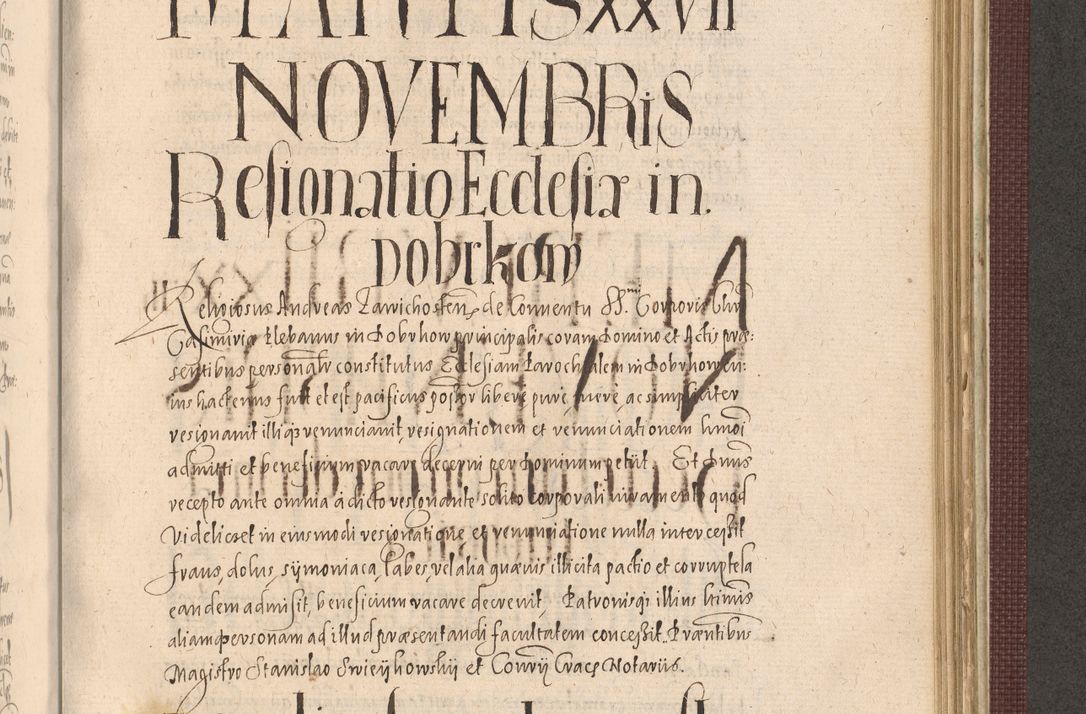 MARTIS XXVII
NOVEMBRIS
Resionatio Ecclesiæ in
Dobrkow
Religiosus Andreas Zawichosten de Conventu SS.mi Corporis Chri
Casimiriæ Plebanus in Dobrkow principalis coram Domino et Actis præ:
sentibus personalr constitutus Ecclesiam Parochialem in Dobrkow cu:
ius hactenus fuit et est pacificus possor libere pure, mere, ac simpliciter
resignavit illi qз renunciavit, resignationem et renunciationem hmoi
admitti et beneficium vacare decerni per Dominum petiit. Et Dnus
recepto ante omnia a dicto resignante solito corporali iuramento quod
Videlicet in eiusmodi resignatione et renunciatione nulla intercessit
fraus, dolus, symoniaca labes, vel alia quævis illicita pactio et corruptela
eandem admisit, beneficium vacare decrevit, Patronisqз illius ltimis
aliam personam ad illud præsentandi facultatem concessit. Præntibus
Magistro Stanislao et Notariis.